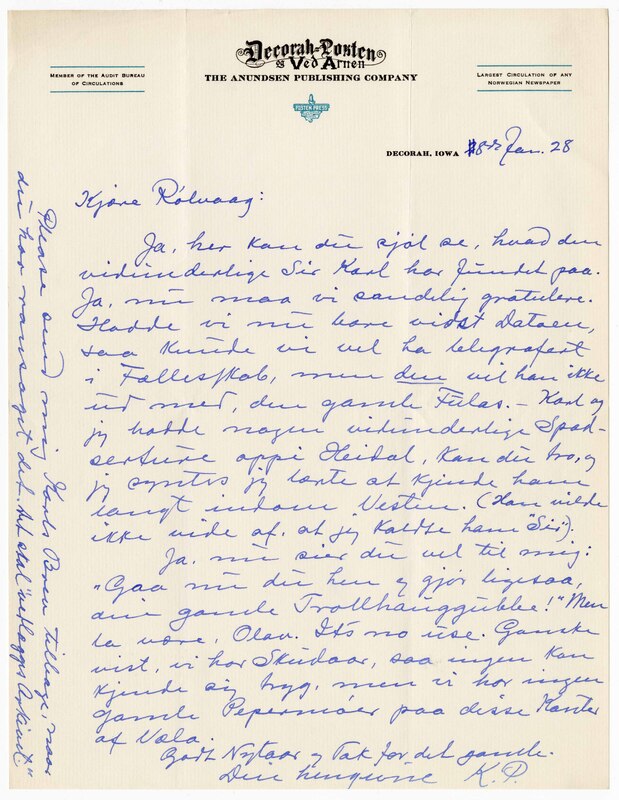 Decorah-Posten
Ved Arnen
THE ANUNDSEN PUBLISHING COMPANY
MEMBER OF THE AUDIT BUREAU
OF CIRCULATIONS
LARGEST CIRCULATION OF ANY
NORWEGIAN NEWSPAPER
POSTEN PRESS
DECORAH, IOWA 8de Jan. 28
Kjære Rølvaag:
Ja, her kan du sjøl se, hvad den
vidunderlige Sir Karl har fundet paa.
Ja, nu maa vi sandelig gratulere.
Hadde vi nu bare vidst Datoen,
saa kunde vi vel ha telegrafert
i Fællesskab, men den vil han ikke
ud med, den gamle Fulas. – Karl og
jeg hadde nogen vidunderlige Spad-
serture oppi Heidal, kan du tro, og
jeg syntes jeg lærte at kjende ham
langt indom Vesten. (Han vilde
ikke vide af, at jeg kaldte ham "Sir").
Ja, nu sier du vel til mig:
"Gaa nu du hen og gjør ligesaa,
din gamle Trollhauggubbe!" Men
la være, Olav. It's no use. Ganske
vist, vi har Skudaar, saa ingen kan
kjende sig tryg, men vi har ingen
gamle Pepermøer paa disse Kanter
af Væla.
Godt Nytaar og Tak for det gamle.
Din hengivne K. P.
Please send mig Karls Brev tilbage, naar
du har ransaget det. Det skal "vedlægges Arkivet."